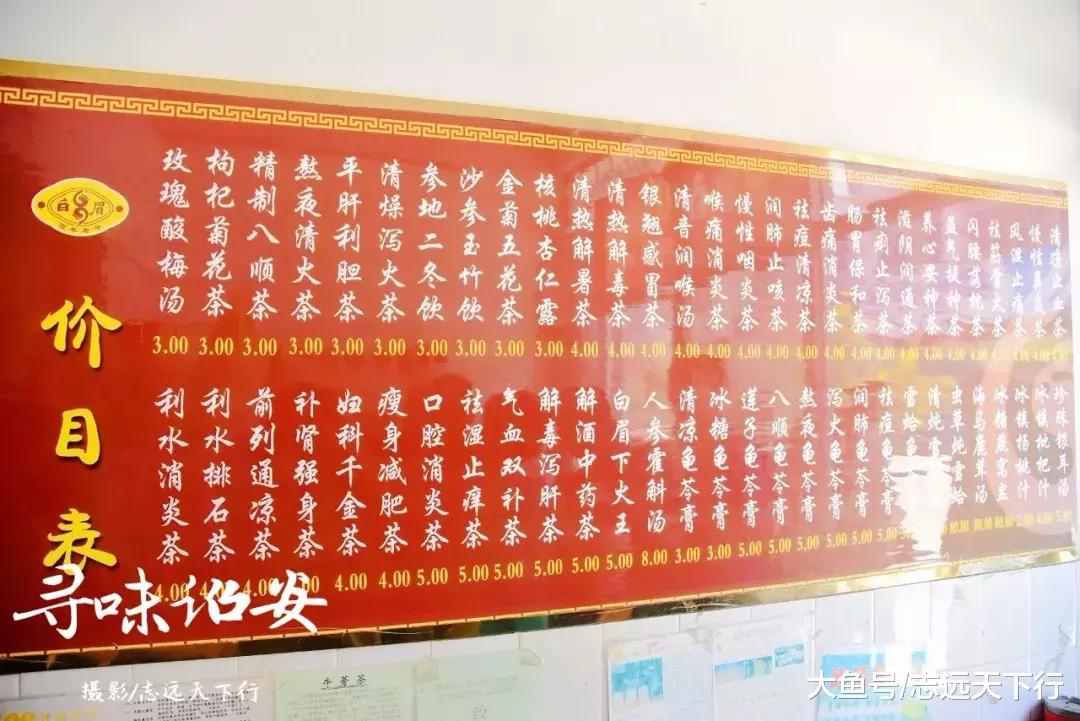 白眉
价目表
玫瑰酸梅汤 3.00
枸杞菊花茶 3.00
精制八顺茶 3.00
熬夜清火茶 3.00
平肝利胆茶 3.00
清燥泻火茶 3.00
参地二冬饮 3.00
沙参玉竹饮 3.00
金菊五花茶 3.00
核桃杏仁露 3.00
清热解暑茶 4.00
清热解毒茶 4.00
银翘感冒茶 4.00
清音润喉汤 4.00
喉痛消炎茶 4.00
慢性咽炎茶 4.00
润肺止咳茶 4.00
祛痘清凉茶 4.00
齿痛消炎茶 4.00
肠胃保和茶 4.00
祛痢止泻茶 4.00
滋阴润通茶 4.00
养心安神茶 4.00
益气提神茶 4.00
闪腰茶 4.00
祛筋骨火茶 4.00
风湿止痛茶 4.00
慢性鼻炎茶 4.00
清凉止血茶 4.00
利水消炎茶 4.00
利水排石茶 4.00
前列通凉茶 4.00
补肾强身茶
妇科千金茶 4.00
瘦身减肥茶 4.00
口腔消炎茶 5.00
祛湿止痒茶 5.00
气血双补茶 5.00
解毒泻肝茶 5.00
解酒中药茶 5.00
白眉下火王 5.00
人参霍斛汤 8.00
清凉龟苓膏 3.00
冰糖龟苓膏 3.00
莲子龟苓膏 5.00
八顺龟苓膏 5.00
熬夜龟苓膏 5.00
泻火龟苓膏 5.00
润肺龟苓膏 5.00
祛痘龟苓膏 5.00
雪蛤龟
清炖雪
虫草炖雪蛤 80.00
海马鹿茸汤 80.00
冰糖燕窝盅 80.00
冰镇杨桃汁 2.00
冰镇枇杷汁 4.00
珍珠银耳汤 5.00
寻味诏安
摄影/志远天下行
牛蒡茶
大鱼号/志远天下行